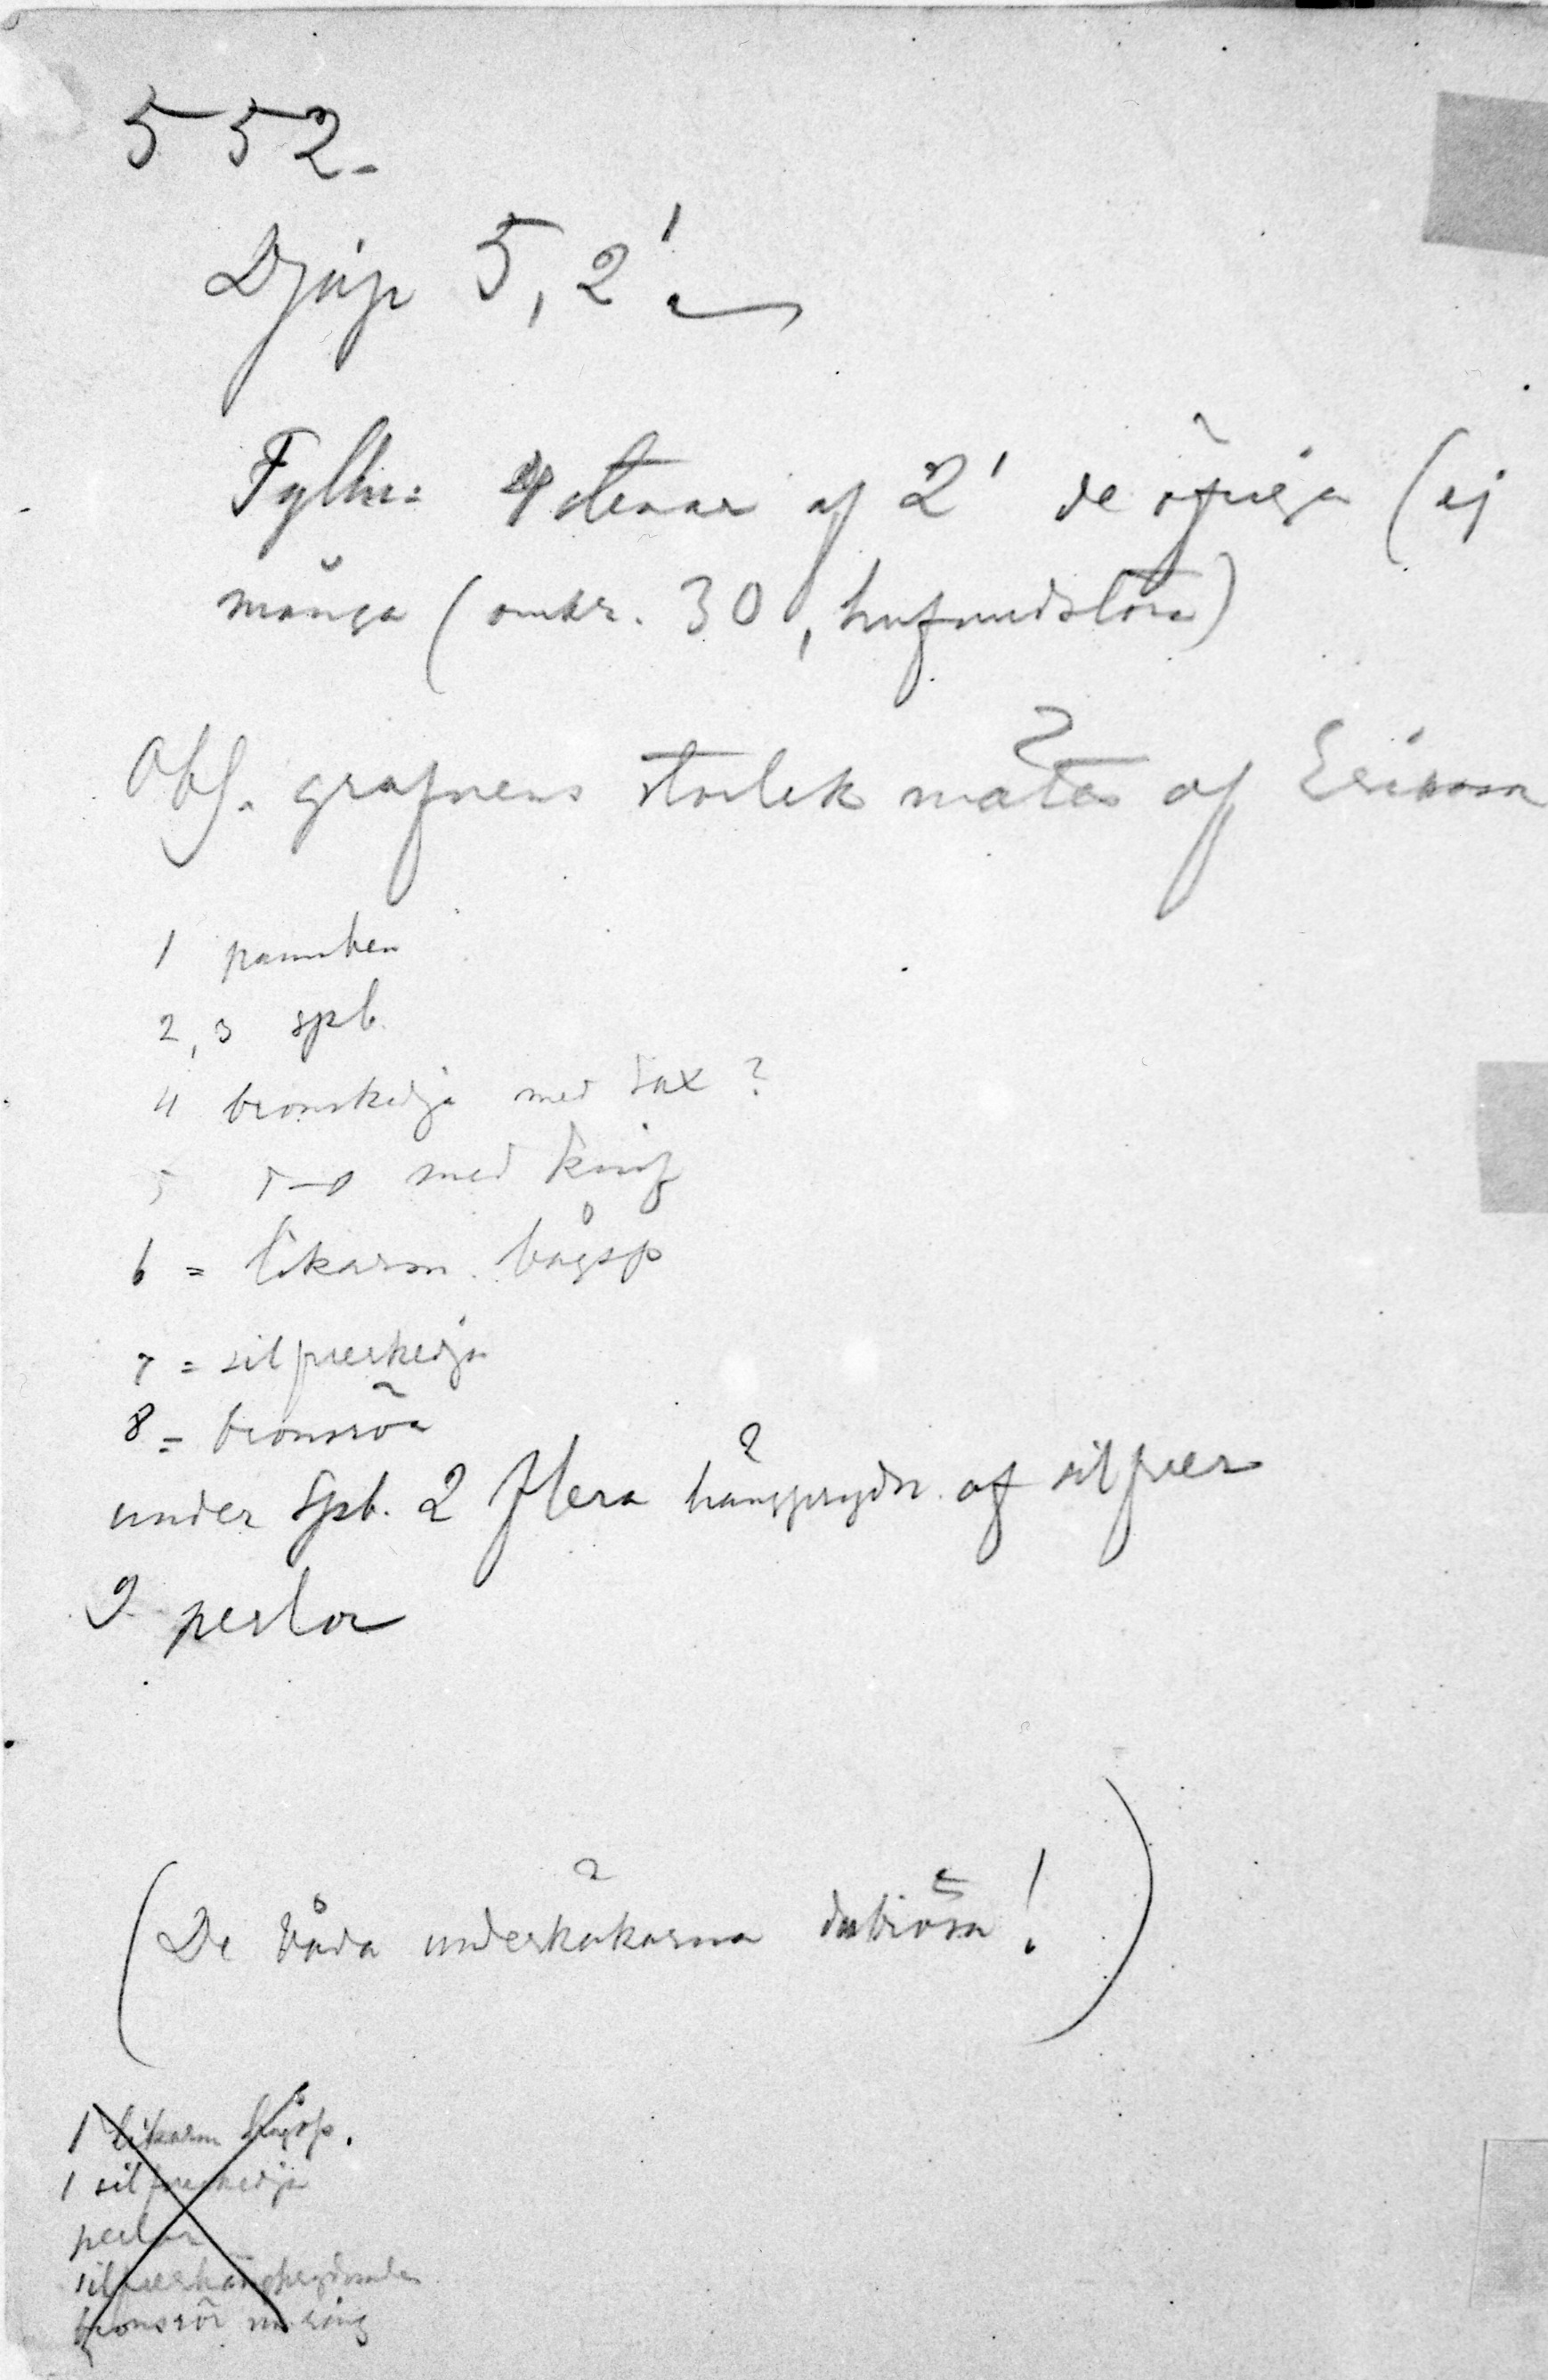 552.
Djup 5,2'
Fylln: 4 stenar af 2' de öfriga (ej
många (omkr. 30, hufvudstora)
Obs. grafvens storlek mätes af Erikson
1 pannben
2,3 spb.
4 bronskedja med sax?
5 d-o med knif
6 = likarm. bågsp
7 = silfverkedja
8 = bronsrör
under spb. 2 flera hängprydn. af silfver
9 perlor
(De båda underkäkarna dubiösa!)
1 likarm bågsp.
1 silfverkedja
perlor
silfverhängprydnader
bronsrör m ring